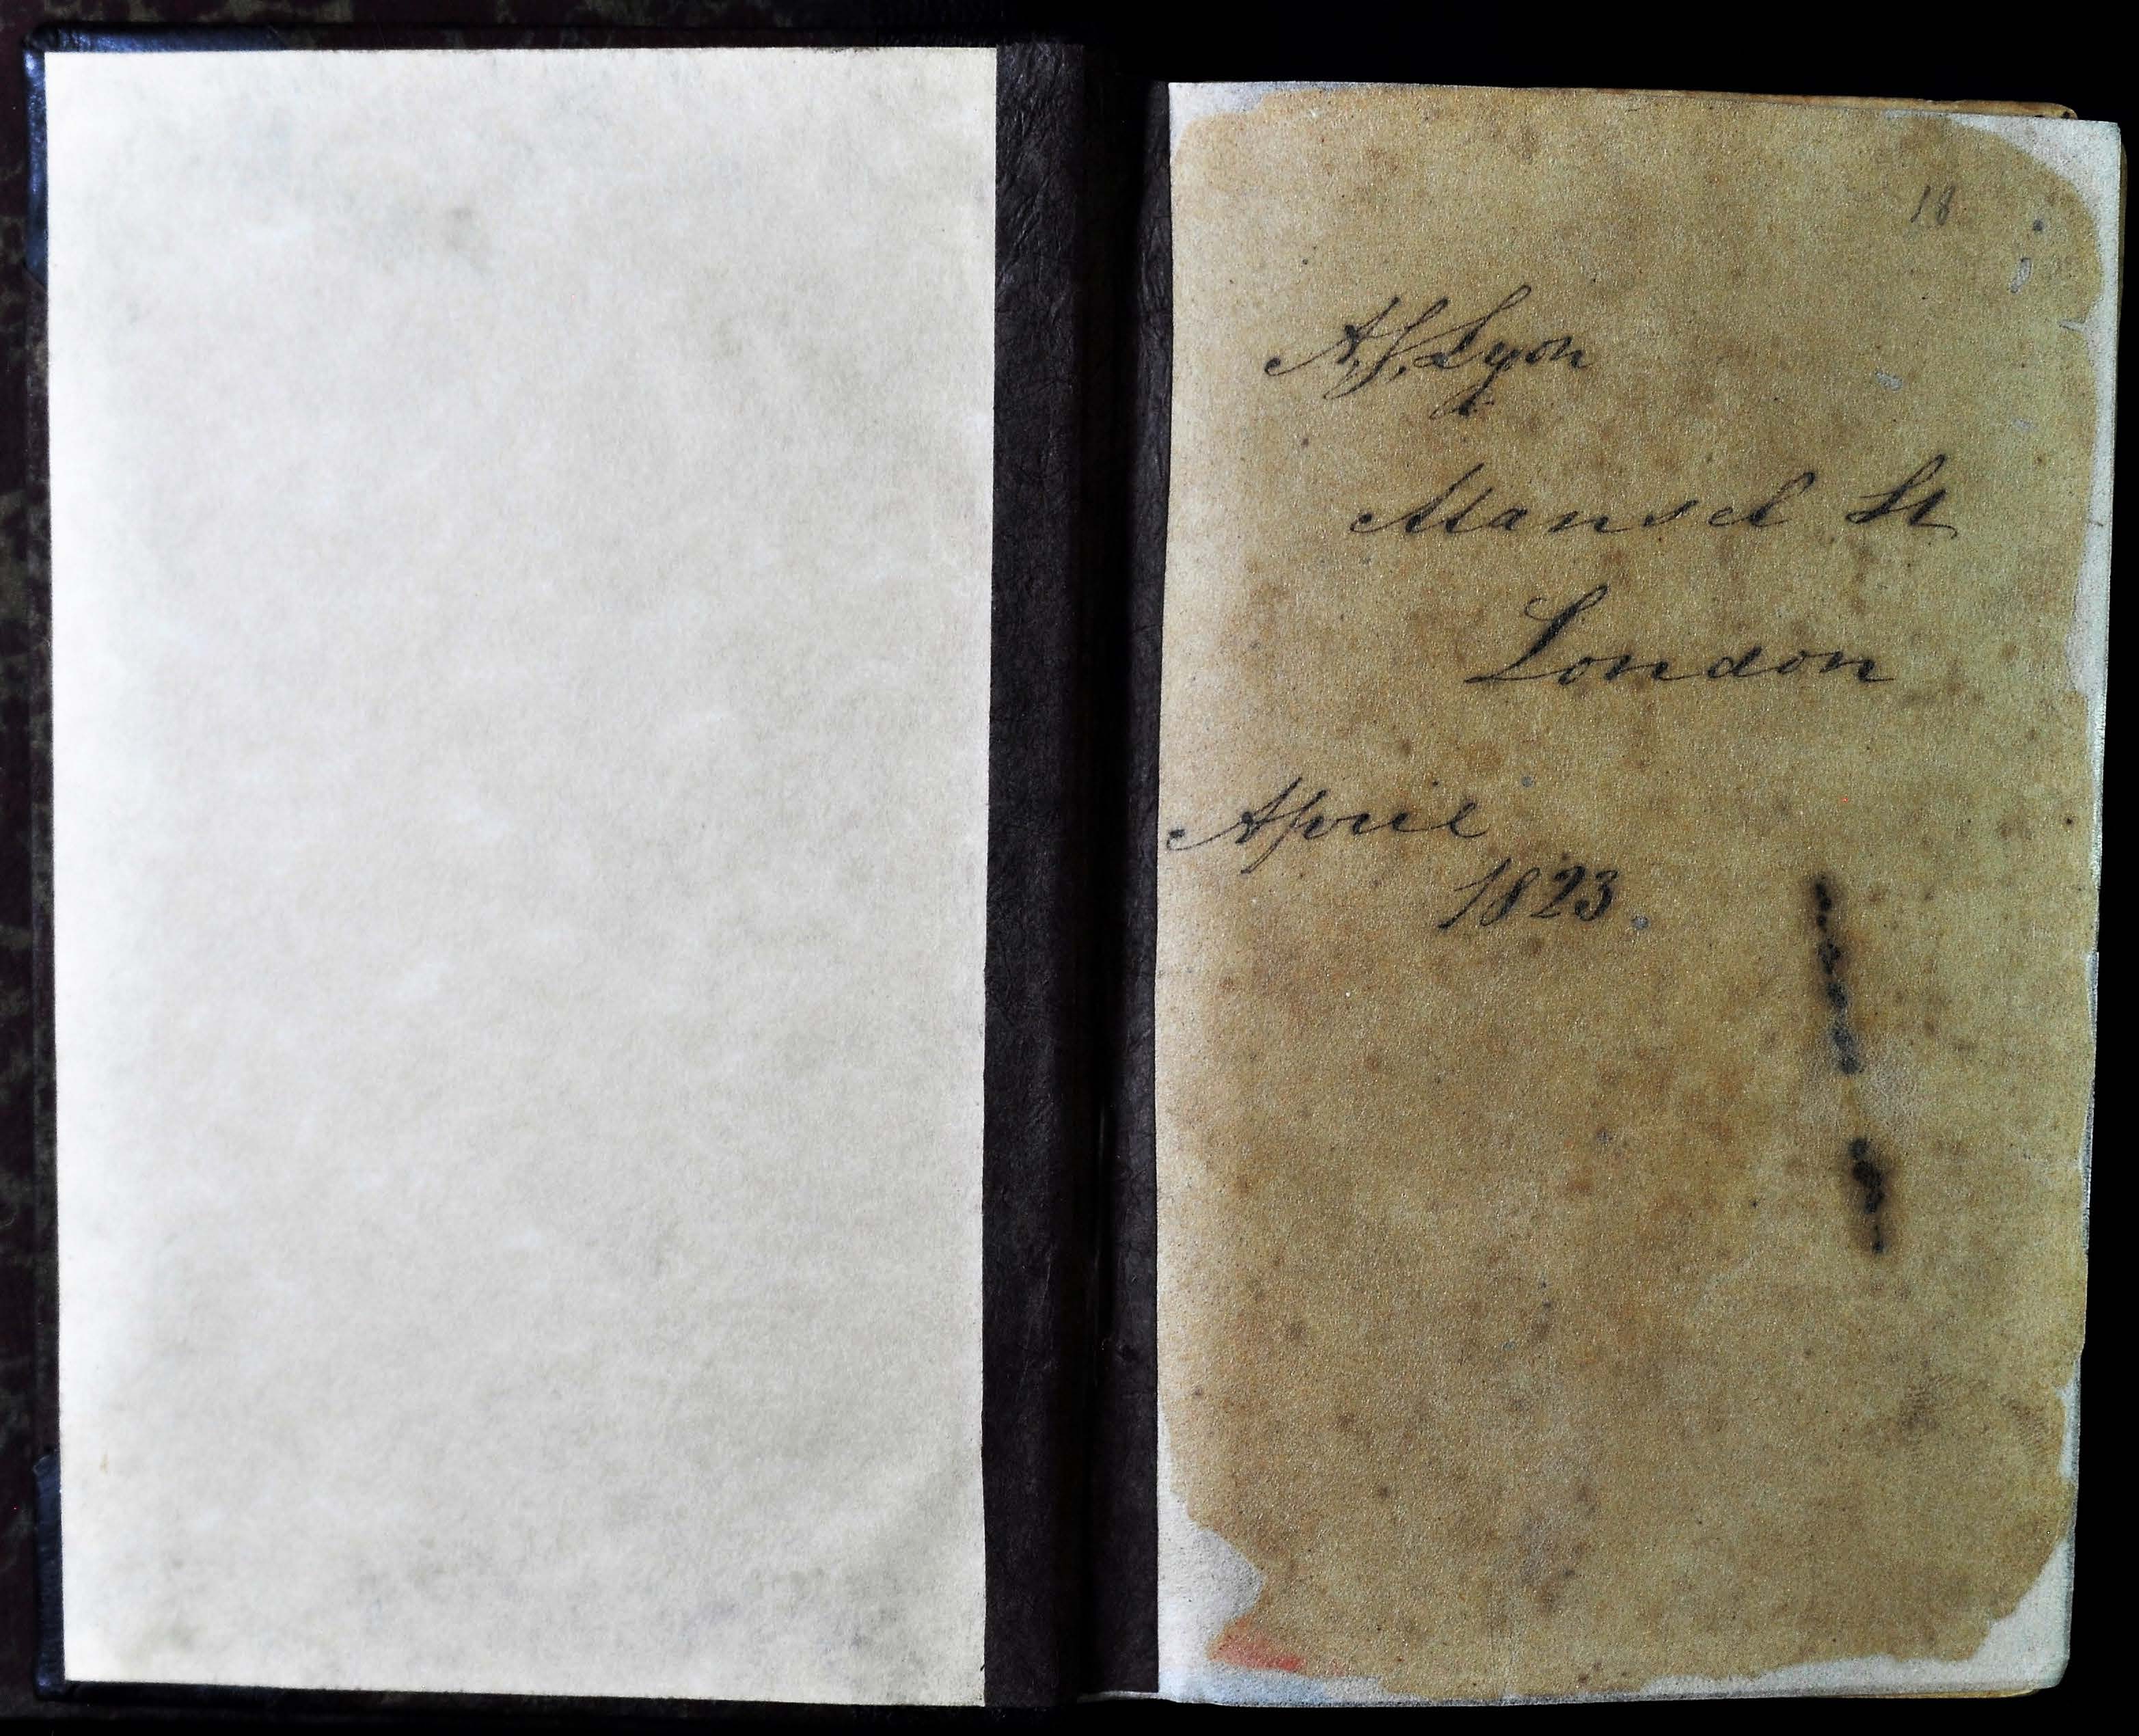 18
A. S. Lyon
Mansel St
London
April
1823.